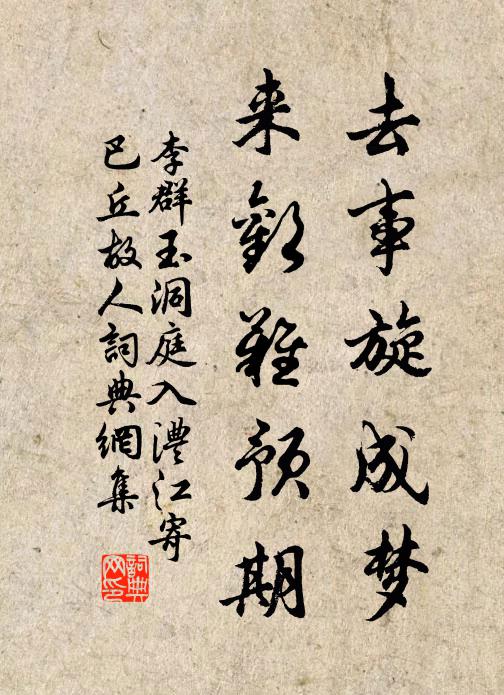 去事旋成梦
来歡難预期
李群玉洞庭入澧江寄
巴丘故人詞典網集
詞典網印